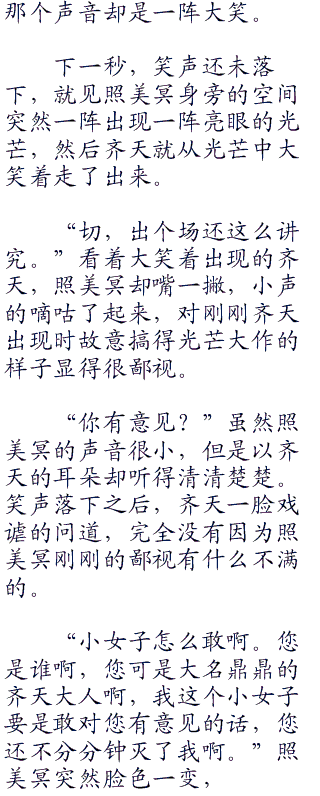 那个声音却是一阵大笑。
下一秒，笑声还未落
下，就见照美冥身旁的空间
突然一阵出现一阵亮眼的光
芒，然后齐天就从光芒中大
笑着走了出来。
“切，出个场还这么讲
究。”看着大笑着出现的齐
天，照美冥却嘴一撇，小声
的嘀咕了起来，对刚刚齐天
出现时故意搞得光芒大作的
样子显得很鄙视。
“你有意见？”虽然照
美冥的声音很小，但是以齐
天的耳朵却听得清清楚楚。
笑声落下之后，齐天一脸戏
谑的问道，完全没有因为照
美冥刚刚的鄙视有什么不满
的。
“小女子怎么敢啊。您
是谁啊，您可是大名鼎鼎的
齐天大人啊，我这个小女子
要是敢对您有意见的话，您
还不分分钟灭了我啊。”照
美冥突然脸色一变，